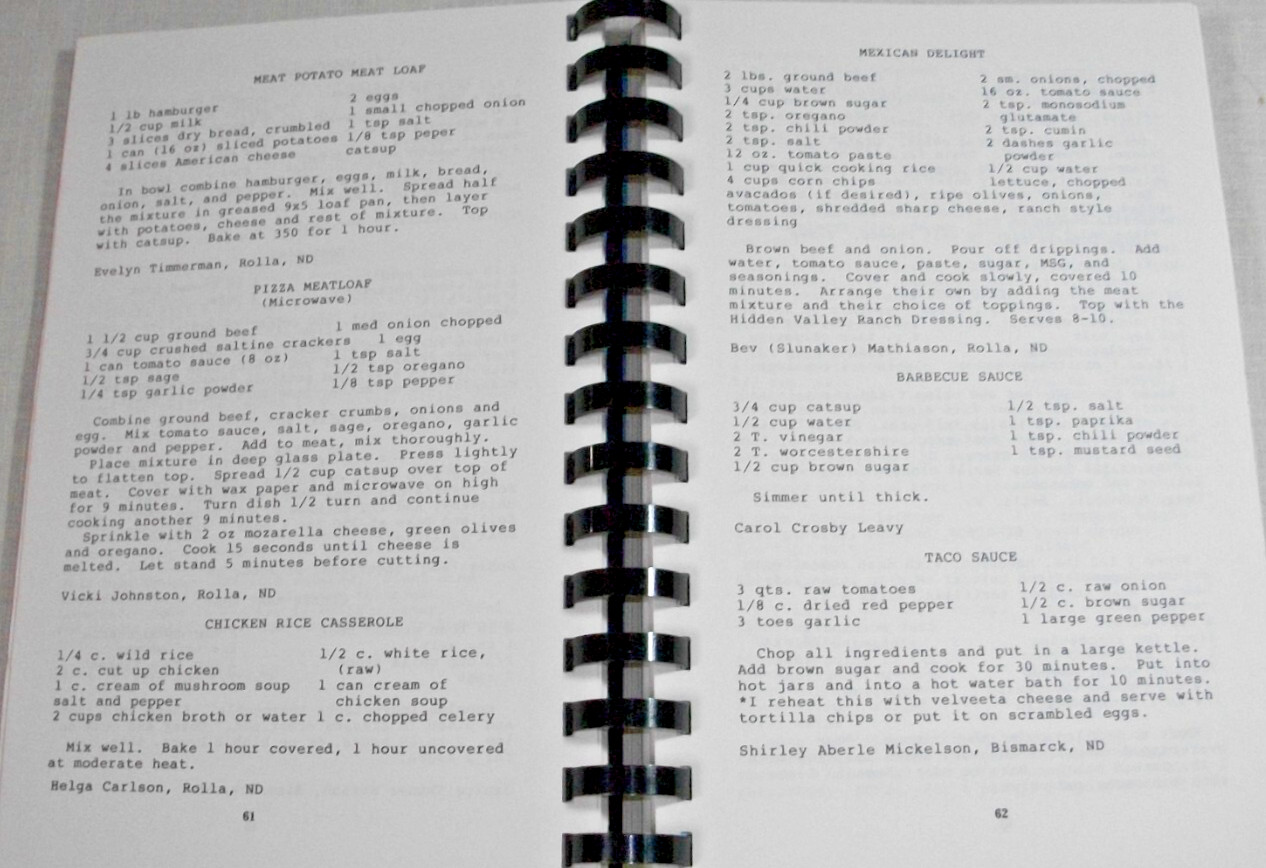 MEAT POTATO MEAT LOAF
1 lb hamburger 2 eggs
1/2 cup milk 1 small chopped onion
3 slices dry bread, crumbled 1 tsp salt
1 can (16 oz) sliced potatoes 1/8 tsp peper
4 slices American cheese catsup
In bowl combine hamburger, eggs, milk, bread,
onion, salt, and pepper. Mix well. Spread half
the mixture in greased 9x5 loaf pan, then layer
with potatoes, cheese and rest of mixture. Top
with catsup. Bake at 350 for 1 hour.
Evelyn Timmerman, Rolla, ND
PIZZA MEATLOAF
(Microwave)
1 1/2 cup ground beef 1 med onion chopped
3/4 cup crushed saltine crackers 1 egg
1 can tomato sauce (8 oz) 1 tsp salt
1/2 tsp sage 1/2 tsp oregano
1/4 tsp garlic powder 1/8 tsp pepper
Combine ground beef, cracker crumbs, onions and
egg. Mix tomato sauce, salt, sage, oregano, garlic
powder and pepper. Add to meat, mix thoroughly.
Place mixture in deep glass plate. Press lightly
to flatten top. Spread 1/2 cup catsup over top of
meat. Cover with wax paper and microwave on high
for 9 minutes. Turn dish 1/2 turn and continue
cooking another 9 minutes.
Sprinkle with 2 oz mozarella cheese, green olives
and oregano. Cook 15 seconds until cheese is
melted. Let stand 5 minutes before cutting.
Vicki Johnston, Rolla, ND
CHICKEN RICE CASSEROLE
1/4 c. wild rice 1/2 c. white rice,
2 c. cut up chicken (raw)
1 c. cream of mushroom soup 1 can cream of
salt and pepper chicken soup
2 cups chicken broth or water 1 c. chopped celery
Mix well. Bake 1 hour covered, 1 hour uncovered
at moderate heat.
Helga Carlson, Rolla, ND
61
MEXICAN DELIGHT
2 lbs. ground beef 2 sm. onions, chopped
3 cups water 16 oz. tomato sauce
1/4 cup brown sugar 2 tsp. monosodium
2 tsp. oregano glutamate
2 tsp. chili powder 2 tsp. cumin
2 tsp. salt 2 dashes garlic
12 oz. tomato paste powder
1 cup quick cooking rice 1/2 cup water
4 cups corn chips lettuce, chopped
avacados (if desired), ripe olives, onions,
tomatoes, shredded sharp cheese, ranch style
dressing
Brown beef and onion. Pour off drippings. Add
water, tomato sauce, paste, sugar, MSG, and
seasonings. Cover and cook slowly, covered 10
minutes. Arrange their own by adding the meat
mixture and their choice of toppings. Top with the
Hidden Valley Ranch Dressing. Serves 8-10.
Bev (Slunaker) Mathiason, Rolla, ND
BARBECUE SAUCE
3/4 cup catsup 1/2 tsp. salt
1/2 cup water 1 tsp. paprika
2 T. vinegar 1 tsp. chili powder
2 T. worcestershire 1 tsp. mustard seed
1/2 cup brown sugar
Simmer until thick.
Carol Crosby Leavy
TACO SAUCE
3 qts. raw tomatoes 1/2 c. raw onion
1/8 c. dried red pepper 1/2 c. brown sugar
3 toes garlic 1 large green pepper
Chop all ingredients and put in a large kettle.
Add brown sugar and cook for 30 minutes. Put into
hot jars and into a hot water bath for 10 minutes.
*I reheat this with velveeta cheese and serve with
tortilla chips or put it on scrambled eggs.
Shirley Aberle Mickelson, Bismarck, ND
62